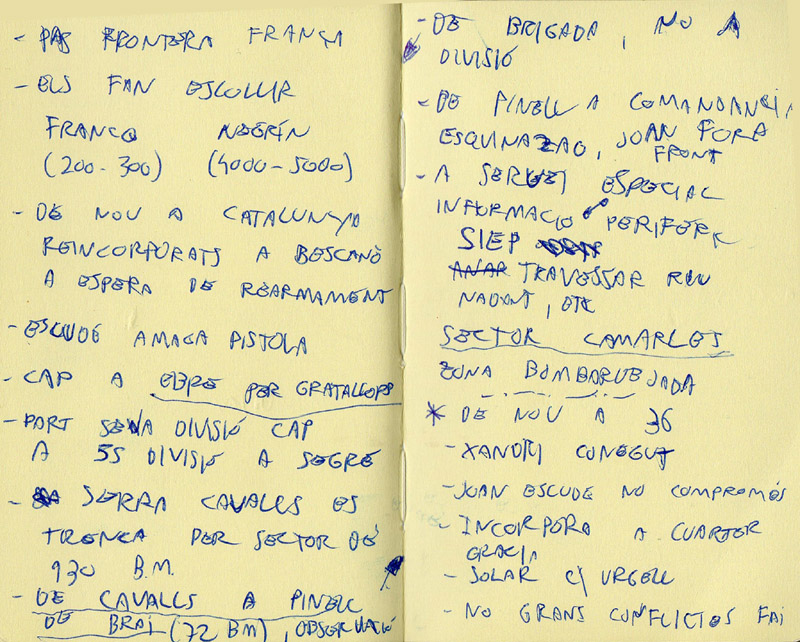 - PAS FRONTERA FRANÇA
- ELS FAN ESCOLLIR
FRANCO NEGRÍN
(200-300) (4000-5000)
- DE NOU A CATALUNYA
REINCORPORATS A BESCANÒ
A ESPERA DE REARMAMENT
- ESCUDÉ AMAGA PISTOLA
- CAP A EBRE PER GRATALLOPS
- PART SEVA DIVISIÓ CAP
A 55 DIVISIÓ A SEGRE
- SERRA CAVALLS ES
TRENCA PER SECTOR DE
130 B.M.
- DE CAVALLS A PINELL
DE BRAI (72 BM), OBSERVACIÓ
- DE BRIGADA, NO A
DIVISIÓ
- DE PINELL A COMANDANCIA
ESQUINAZAO, JOAN FORA
FRONT
- A SERVEI ESPECIAL
INFORMACIO PERIFERIC
SIEP
ANAR TRAVESSAR RIU
NADANT, ETC
SECTOR CAMARLES
ZONA BOMBARDEJADA
* DE NOU A 36
- XANDRI CONEGUT
- JOAN ESCUDE NO COMPROMÉS
- INCORPORA A CUARTER
GRACIA
- SOLAR C/ URGELL
- NO GRANS CONFLICTES FAI